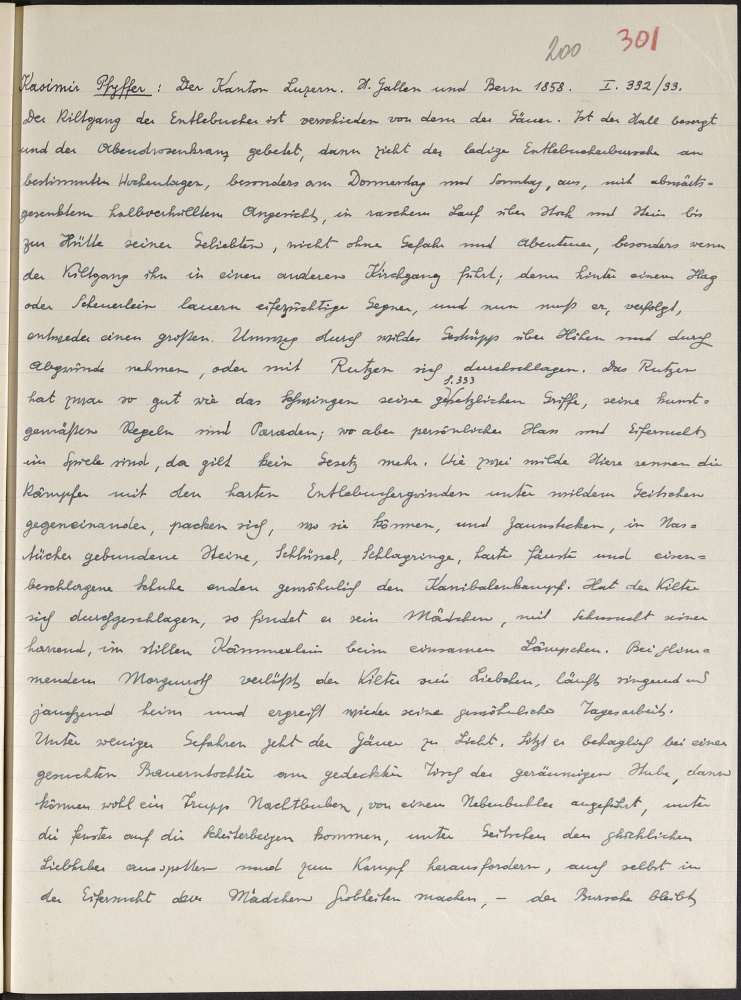 200 301
Kasimir Pfyffer: Der Kanton Luzern. St. Gallen und Bern 1858. I. 332/33.
Der Kiltgang der Entlebucher ist verschieden von dem der Gäuer. Ist der Stall besorgt
und der Abendrosenkranz gebetet, dann zieht der ledige Entlebucherbursche an
bestimmten Wochentagen, besonders am Donnerstag und Sonntag, aus, mit abwärts-
gesenktem halbverhülltem Angesicht, in raschem Lauf über Stock und Stein bis
zur Hütte seiner Geliebten, nicht ohne Gefahr und Abenteuer, besonders wenn
der Kiltgang ihn in einen anderen Kirchgang führt; denn hinter einem Hag
oder Scheuerlein lauern eifersüchtige Gegner, und nun muß er, verfolgt,
entweder einen großen Umweg durch wildes Gestrüpp über Höhen und durch
Abgründe nehmen, oder mit Rutzen sich durchschlagen. Das Rutzen
S. 333
hat zwar so gut wie das Schwingen seine gesetzlichen Griffe, seine kunst-
gemäßen Regeln und Paraden; wo aber persönlicher Hass und Eifersucht
im Spiele sind, da gilt kein Gesetz mehr. Wie zwei wilde Stiere rennen die
Kämpfer mit den harten Entlebuchergrinden unter wildem Geitschen
gegeneinander, packen sich, wo sie können, und Zaunstecken, in Nas-
tücher gebundene Steine, Schlüssel, Schlagringe, harte Fäuste und eisen-
beschlagene Schuhe enden gewöhnlich den Kanibalenkampf. Hat der Kilter
sich durchgeschlagen, so findet er sein Mädchen, mit Sehnsucht seiner
harrend, im stillen Kämmerlein beim einsamen Lämpchen. Bei glim-
mendem Morgenroth verläßt der Kilter sein Liebchen, läuft singend und
jauchzend heim und ergreift wieder seine gewöhnliche Tagesarbeit.
Unter weniger Gefahren geht der Gäuer zu Licht. Sitzt er behaglich bei einer
gesuchten Bauerntochter am gedeckten Tisch der geräumigen Stube, dann
können wohl ein Trupp Nachtbuben, von einem Nebenbuhler angeführt, unter
die Fenster auf die Scheiterbeigen kommen, unter Geitschen den glücklichen
Liebhaber ausspotten und zum Kampf herausfordern, auch selbst in
der Eifersucht dem Mädchen Grobheiten machen, – der Bursche bleibt